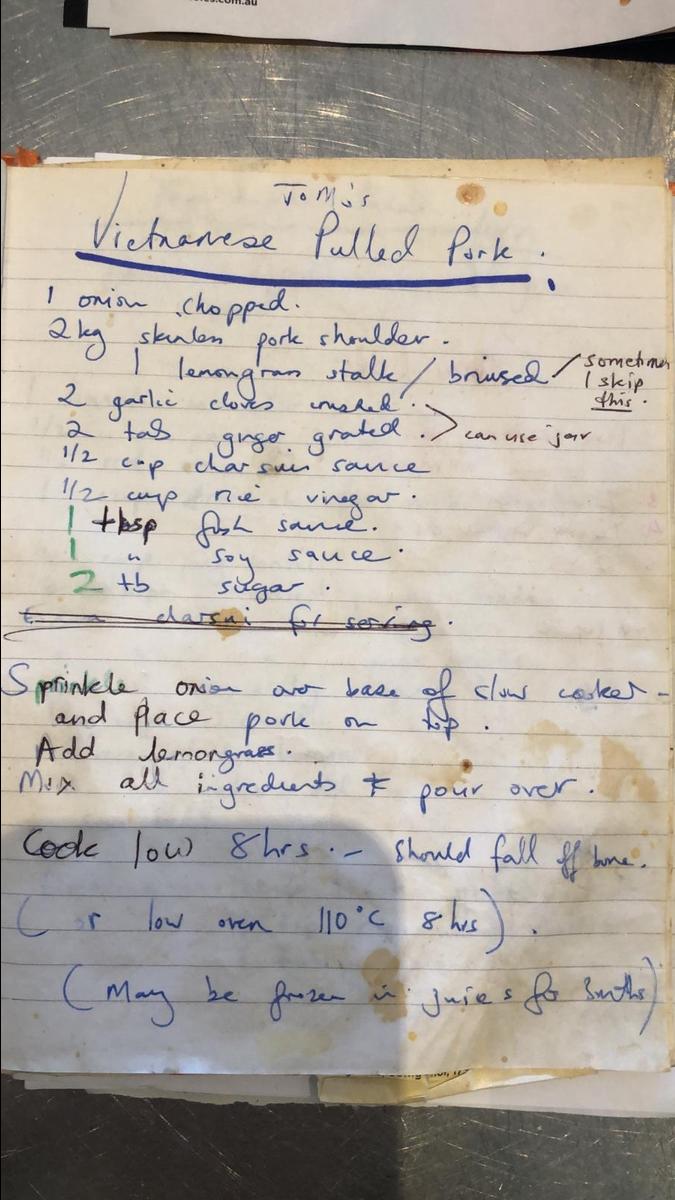 .com.au
TOM's
Vietnamese Pulled Pork.
1 onion chopped.
2kg skinless pork shoulder.
1 lemongrass stalk / bruised / sometimes
I skip
this.
2 garlic cloves crushed.
2 tab ginger grated. > can use jar
1/2 cup char suin sauce
1/2 cup rice vinegar.
1 tbsp fish sauce.
1 " soy sauce.
2 tb sugar.
charsui for serving.
Sprinkle onion over base of slow cooker -
and place pork on top.
Add lemongrass.
Mix all ingredients & pour over.
Cook low 8hrs. - should fall off bone.
(or low oven 110°C 8hrs).
(May be frozen in juices for 3mths)